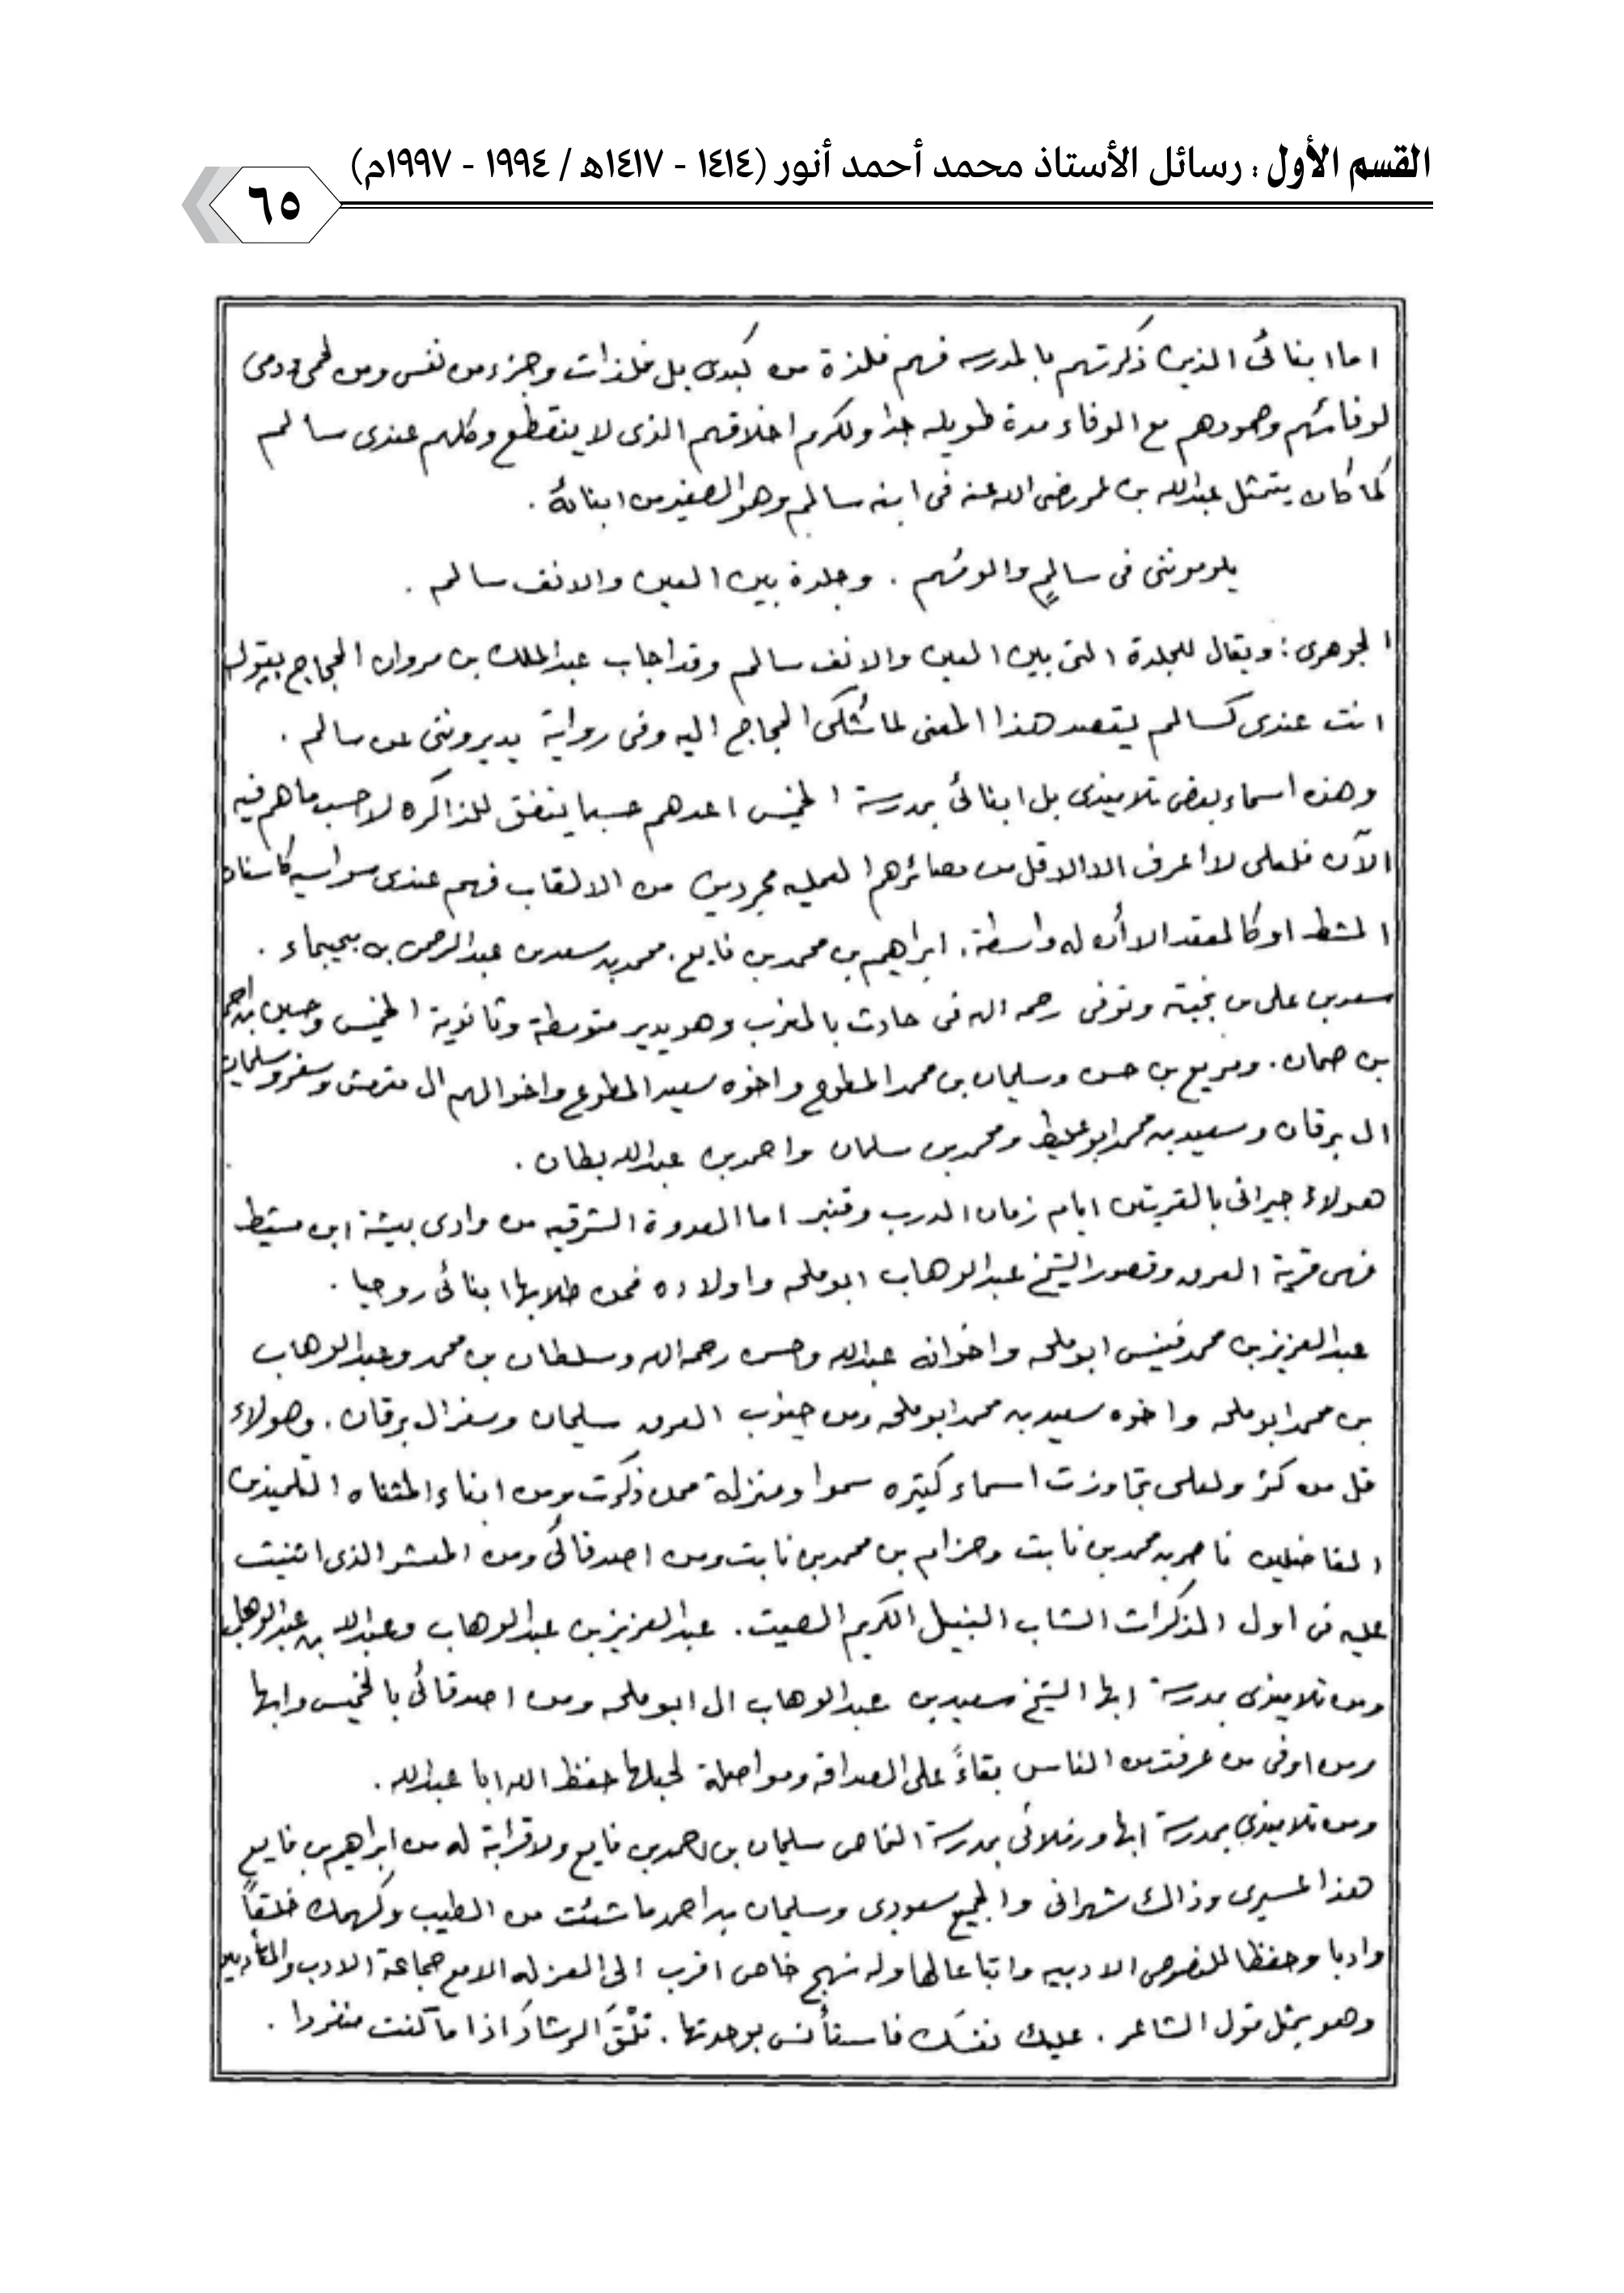 القسم الأول : رسائل الأستاذ محمد أحمد أنور (١٤١٤ - ١٤١٧هـ / ١٩٩٤ - ١٩٩٧م)
٦٥
اما ابنائى الذين ذكرتهم بالمدرسه فهم فلذة من كبدى بل فلذات وجزء من نفسى ومن لحمى ودمى
لوفائهم وصمودهم مع الوفاء مدة طويله جدا ولكرم اخلاقهم الذى لا ينقطع وكلهم عندى سالم
كما كان يتمثل عبدالله بن عمر رضى الله عنه فى ابنه سالم وهو الصغير من ابنائه .
يلوموننى فى سالمٍ والومهم . وجلدة بين العين والانف سالم .
الجوهرى : ويقال للجلدة التى بين العين والانف سالم وقد اجاب عبدالملك بن مروان الحجاج بقوله
انت عندى كسالم يقصد هذا المعنى لما شكى الحجاج اليه وفى رواية يديروننى عن سالم .
وهذه اسماء بعض تلاميذى بل ابنائى بمدرسة الخميس اعدهم حسبما يتفق للذاكره لا حسب ما هم فيه
الآن فلعلى لا اعرف الا الاقل من مصائرهم العمليه مجردين من الالقاب فهم عندى سواسيه كاسنان
المشط او كالعقد الا أن له واسطة . ابراهيم بن محمد بن فايع . محمد بن سعد بن عبدالرحمن بن بجيماء .
سعد بن على بن وتوفى رحمه الله فى حادث بالمغرب وهو يدير متوسطة وثانوية الخميس وحسين بن احمد
بن صمان . ومريع بن حسن وسليمان بن محمد المطوع واخوه سعيد المطوع واخوالهم ال وسفر وسليمان
ال برقان وسعيد بن محمد ابو ومحمد بن سلمان واحمد بن عبدالله بطان .
هولاء جيرانى بالقريتين ايام زمان الدرب وقنبر اما العدوة الشرقيه من وادى بيشة ابن مشيط
فهى قرية العرق وقصور الشيخ عبدالوهاب ابوملحه واولاده فمن طلابها ابنائى روحيا .
عبدالعزيز بن محمد فنيس ابوملحه واخوانه عبدالله وحسن رحمه الله وسلطان بن محمد وعبدالوهاب
بن محمد ابوملحه واخوه سعيد بن محمد ابوملحه ومن جنوب العرق سليمان وسفر ال برقان . وهولاء
قل من كثر ولعلى تجاوزت اسماء كثيره سموا ومنزلة ممن ذكرت ومن ابناء المثناه التلميذين
الفاضلين ناصر بن محمد بن نابت وحزام بن محمد بن نابت ومن اصدقائى ومن المعشر الذى اثنيت
عليه فى اول المذكرات الشاب النبيل الكريم الصيت . عبدالعزيز بن عبدالوهاب وعبدالله بن عبدالوهاب
ومن تلاميذى بمدرسة ابها الشيخ سعيد بن عبدالوهاب ال ابوملحه ومن اصدقائى بالخميس وابها
ومن اوفى من عرفت من الناس بقاءً على الصداقه ومواصلة لحبلها حفظ الله ابا عبدالله .
ومن تلاميذى بمدرسة ابها وزملائى بمدرسة النماص سليمان بن احمد بن فايع ولا قرابة له من ابراهيم بن فايع
هذا عسيرى وذاك شهرانى والجميع سعودى وسليمان بن احمد ما شئت من الطيب وكهمك خلقاً
وادبا وحفظا للنصوص الادبيه واتباعا لها وله نهج خاص اقرب الى العزله الا مع جماعة الادب والمتأدبين
وهو يمثل قول الشاعر . عليك نفسَك فاستأنس بوحدتها . تلْقَ الرشادَ اذا ما كنت منفردا .